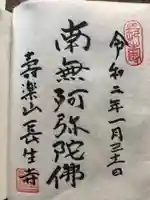 令和二年一月三十一日
南無阿弥陀佛
壽楽山長生寺